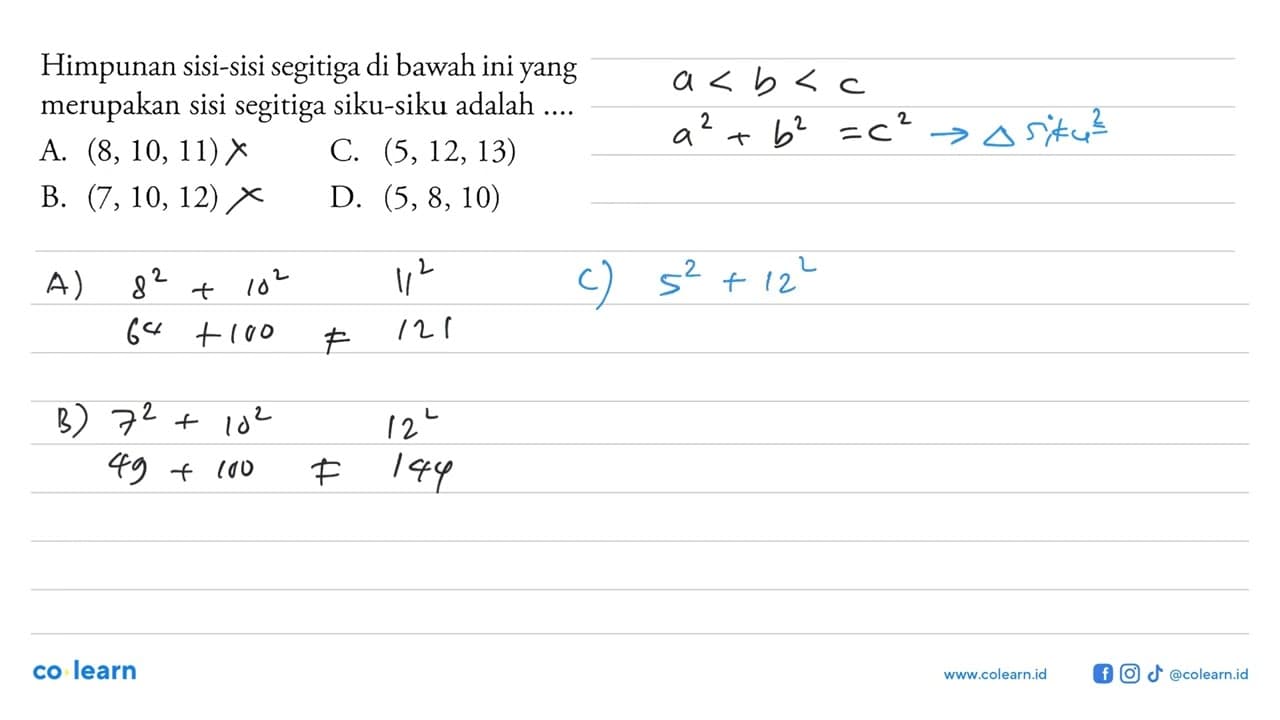 Himpunan sisi-sisi segitiga di bawah ini yang
merupakan sisi segitiga siku-siku adalah ....
A. (8, 10, 11) C. (5, 12, 13)
B. (7, 10, 12) D. (5, 8, 10)
a < b < c
a² + b² = c² → △ siku²
A) 8² + 10² 11²
64 + 100 ≠ 121
B) 7² + 10² 12²
49 + 100 ≠ 144
C) 5² + 12²
co learn
www.colearn.id @colearn.id